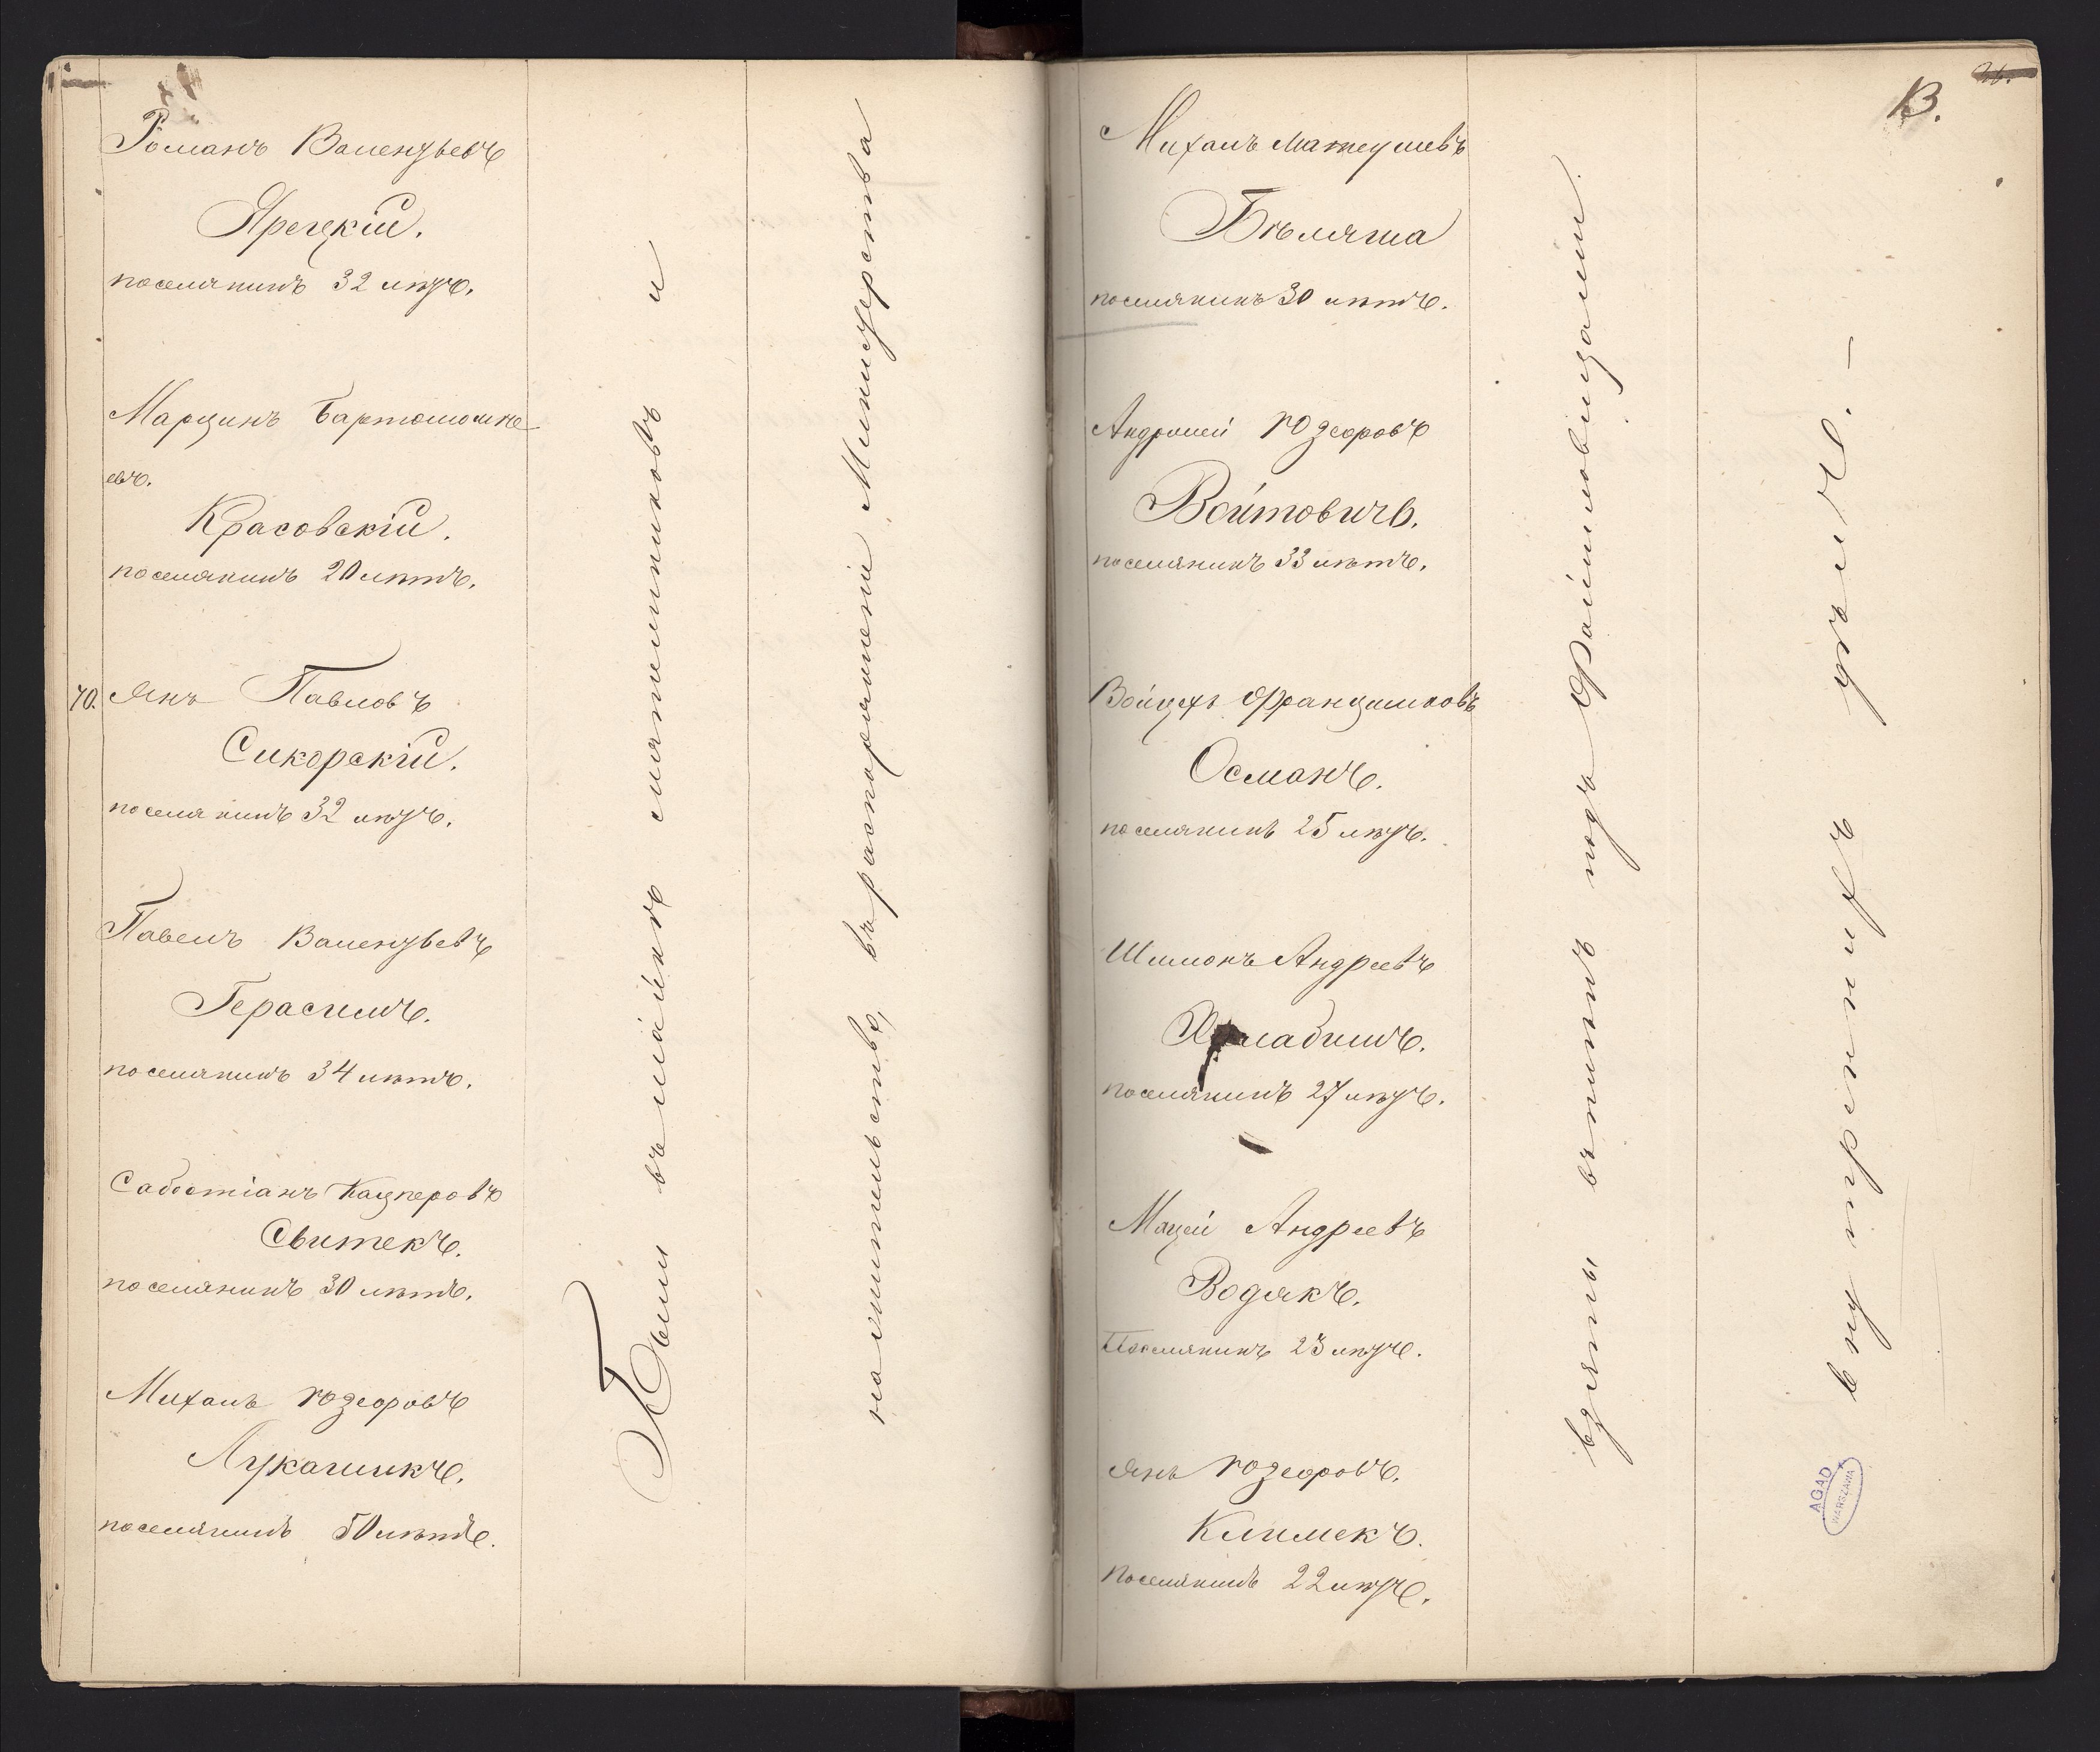 Романъ Валентьевъ
Ярецкій.
поселянинъ 32 лѣтъ.
Марцинъ Бартоломѣ-
евъ.
Красовскій.
поселянинъ 20 лѣтъ.
70. Янъ Павловъ
Сикорскій.
поселянинъ 32 лѣтъ.
Павелъ Валентьевъ
Герасимъ.
поселянинъ 34 лѣтъ.
Сабостіанъ Кацперовъ
Свитекъ.
поселянинъ 30 лѣтъ.
Михалъ Юзефовъ
Лукашикъ.
поселянинъ 50 лѣтъ.
Были въ шайкѣ мятежниковъ и
въ распоряженіи Министерства
13.
Михалъ Матеушевъ
Бѣляша
поселянинъ 30 лѣтъ.
Андржей Юзефовъ
Войтовичъ.
поселянинъ 33 лѣтъ.
Войцехъ Францишковъ
Османъ.
поселянинъ 25 лѣтъ.
Шимонъ Андреевъ
поселянинъ 27 лѣтъ.
Мацей Андреевъ
Водякъ.
Поселянинъ 23 лѣтъ.
Янъ Юзефовъ.
Климекъ.
поселянинъ 22 лѣтъ.
взяты въ плѣнъ подъ Файславицами
внутреннихъ дѣлъ. —
AGAD
WARSZAWA